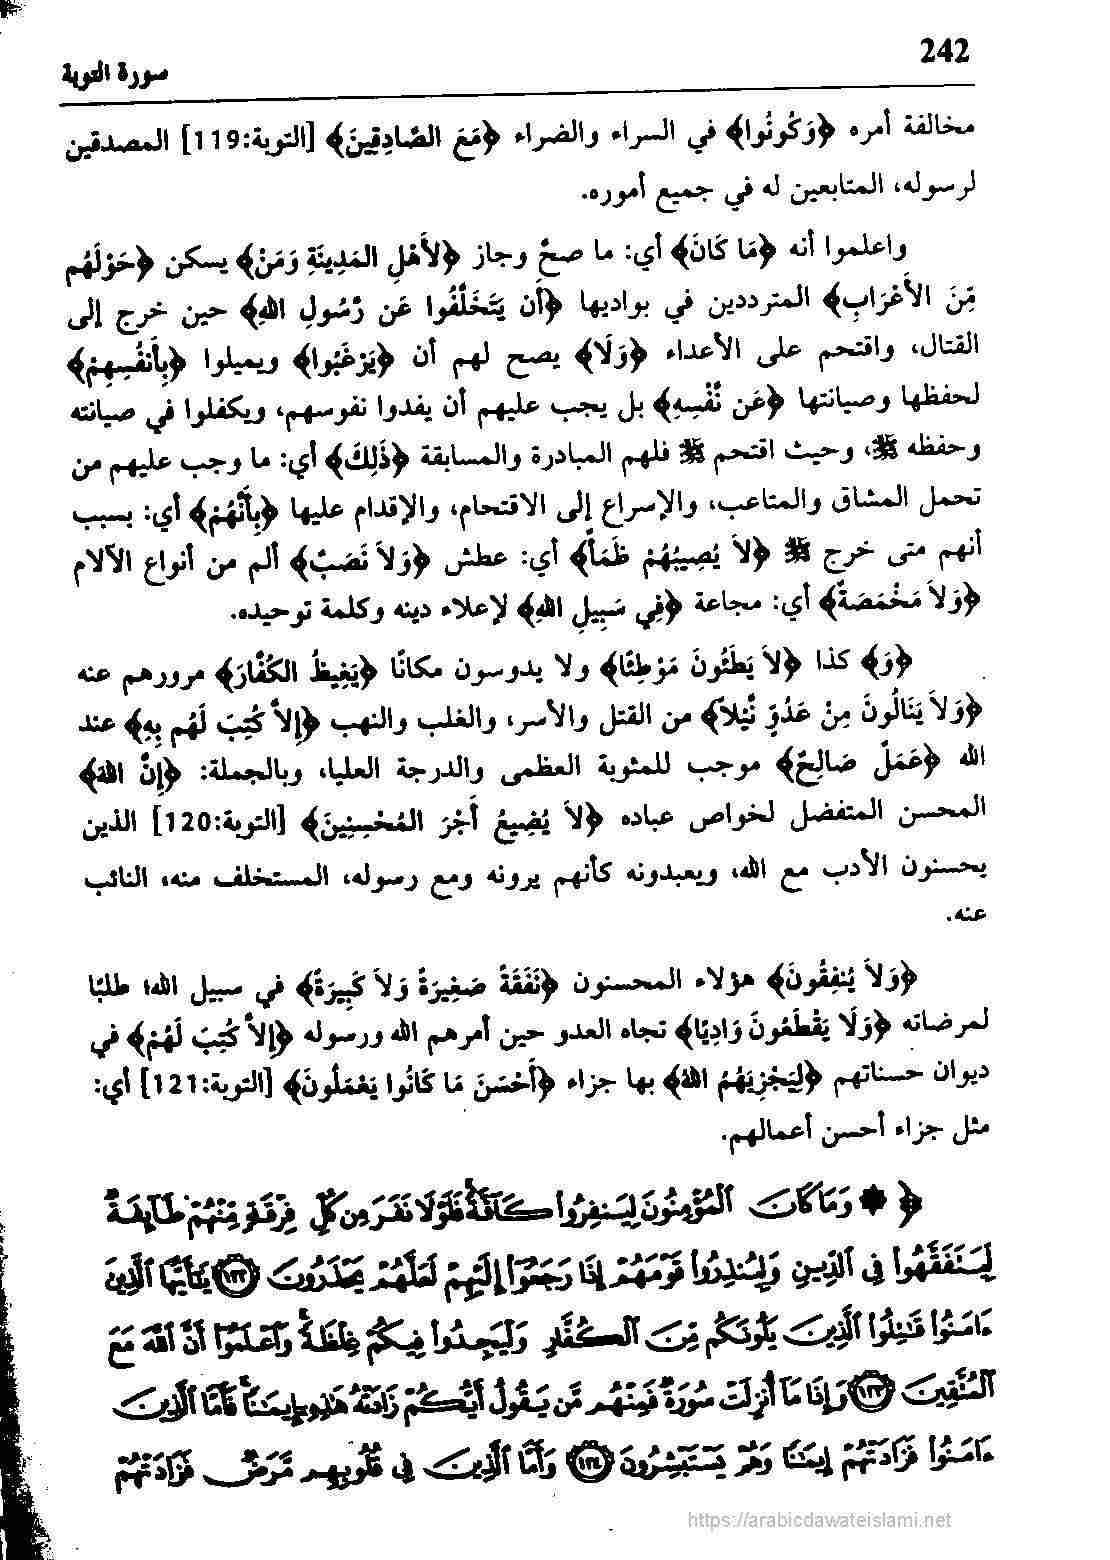 242
سورة التوبة
مخالفة أمره ﴿وَكُونُوا﴾ في السراء والضراء ﴿مَعَ الصَّادِقِينَ﴾ [التوبة:119] المصدقين
لرسوله، المتابعين له في جميع أموره.
واعلموا أنه ﴿مَا كَانَ﴾ أي: ما صحَّ وجاز ﴿لأَهْلِ المَدِينَةِ وَمَنْ﴾ يسكن ﴿حَوْلَهُم
مِّنَ الأَعْرَابِ﴾ المترددين في بواديها ﴿أَن يَتَخَلَّفُوا عَن رَّسُولِ اللهِ﴾ حين خرج إلى
القتال، واقتحم على الأعداء ﴿وَلَا﴾ يصح لهم أن ﴿يَرْغَبُوا﴾ ويميلوا ﴿بِأَنفُسِهِمْ﴾
لحفظها وصيانتها ﴿عَن نَّفْسِهِ﴾ بل يجب عليهم أن يفدوا نفوسهم، ويكفلوا في صيانته
وحفظه ﷺ، وحيث اقتحم ﷺ فلهم المبادرة والمسابقة ﴿ذَلِكَ﴾ أي: ما وجب عليهم من
تحمل المشاق والمتاعب، والإسراع إلى الاقتحام، والإقدام عليها ﴿بِأَنَّهُمْ﴾ أي: بسبب
أنهم متى خرج ﷺ ﴿لاَ يُصِيبُهُمْ ظَمَأٌ﴾ أي: عطش ﴿وَلاَ نَصَبٌ﴾ ألم من أنواع الآلام
﴿وَلاَ مَخْمَصَةٌ﴾ أي: مجاعة ﴿فِي سَبِيلِ اللهِ﴾ لإعلاء دينه وكلمة توحيده.
﴿وَ﴾ كذا ﴿لاَ يَطَئُونَ مَوْطِئًا﴾ ولا يدوسون مكانًا ﴿يَغِيظُ الكُفَّارَ﴾ مرورهم عنه
﴿وَلاَ يَنَالُونَ مِنْ عَدُوٍّ نَّيْلاً﴾ من القتل والأسر، والغلب والنهب ﴿إِلاَّ كُتِبَ لَهُم بِهِ﴾ عند
الله ﴿عَمَلٌ صَالِحٌ﴾ موجب للمثوبة العظمى والدرجة العليا، وبالجملة: ﴿إِنَّ اللهَ﴾
المحسن المتفضل لخواص عباده ﴿لاَ يُضِيعُ أَجْرَ المُحْسِنِينَ﴾ [التوبة:120] الذين
يحسنون الأدب مع الله، ويعبدونه كأنهم يرونه ومع رسوله، المستخلف منه، النائب
عنه.
﴿وَلاَ يُنفِقُونَ﴾ هؤلاء المحسنون ﴿نَفَقَةً صَغِيرَةً وَلاَ كَبِيرَةً﴾ في سبيل الله؛ طلبًا
لمرضاته ﴿وَلَا يَقْطَعُونَ وَادِيًا﴾ تجاه العدو حين أمرهم الله ورسوله ﴿إِلاَّ كُتِبَ لَهُمْ﴾ في
ديوان حسناتهم ﴿لِيَجْزِيَهُمُ اللهُ﴾ بها جزاء ﴿أَحْسَنَ مَا كَانُوا يَعْمَلُونَ﴾ [التوبة:121] أي:
مثل جزاء أحسن أعمالهم.
﴿ ۞ وَمَا كَانَ الْمُؤْمِنُونَ لِيَنفِرُوا كَآفَّةً ۚ فَلَوْلَا نَفَرَ مِن كُلِّ فِرْقَةٍ مِّنْهُمْ طَآئِفَةٌ
لِّيَتَفَقَّهُوا فِي الدِّينِ وَلِيُنذِرُوا قَوْمَهُمْ إِذَا رَجَعُوا إِلَيْهِمْ لَعَلَّهُمْ يَحْذَرُونَ ﴿١٢٢﴾ يَٰٓأَيُّهَا الَّذِينَ
ءَامَنُوا قَٰتِلُوا الَّذِينَ يَلُونَكُم مِّنَ الْكُفَّارِ وَلْيَجِدُوا فِيكُمْ غِلْظَةً ۚ وَاعْلَمُوٓا أَنَّ اللَّهَ مَعَ
الْمُتَّقِينَ ﴿١٢٣﴾ وَإِذَا مَآ أُنزِلَتْ سُورَةٌ فَمِنْهُم مَّن يَقُولُ أَيُّكُمْ زَادَتْهُ هَٰذِهِۦٓ إِيمَٰنًا ۚ فَأَمَّا الَّذِينَ
ءَامَنُوا فَزَادَتْهُمْ إِيمَٰنًا وَهُمْ يَسْتَبْشِرُونَ ﴿١٢٤﴾ وَأَمَّا الَّذِينَ فِي قُلُوبِهِم مَّرَضٌ فَزَادَتْهُمْ
https://arabicdawateislami.net